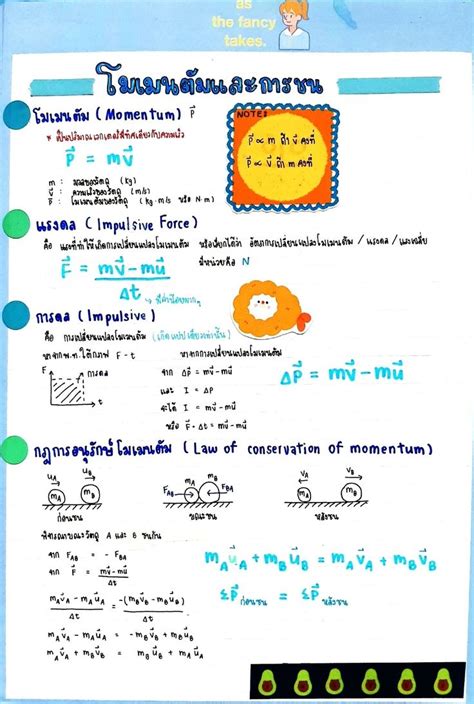 as
the fancy
takes.
โมเมนตัมและการชน
โมเมนตัม ( Momentum ) P⃗
* เป็นปริมาณเวกเตอร์ที่มีทิศเดียวกับความเร็ว
P⃗ = mv⃗
m : มวลของวัตถุ (kg)
v⃗ : ความเร็วของวัตถุ (m/s)
P⃗ : โมเมนตัมของวัตถุ (kg·m/s หรือ N·m)
NOTE:
P⃗ ∝ m ถ้า v⃗ คงที่
P⃗ ∝ v⃗ ถ้า m คงที่
แรงดล ( Impulsive Force )
คือ แรงที่ทำให้เกิดการเปลี่ยนแปลงโมเมนตัม หรือเรียกได้ว่า อัตราการเปลี่ยนแปลงโมเมนตัม / แรงดล / แรงเฉลี่ย
มีหน่วยคือ N
F⃗ = mv⃗ - mu⃗
Δt → มีค่าน้อยมากๆ
การดล ( Impulsive )
คือ การเปลี่ยนแปลงโมเมนตัม (เกิดแปปเดียวเท่านั้น)
หาจากพ.ท.ใต้กราฟ F - t
หาจากการเปลี่ยนแปลงโมเมนตัม
F
การดล
t
จาก ΔP⃗ = mv⃗ - mu⃗
และ I = ΔP
จะได้ I = mv⃗ - mu⃗
หรือ F⃗·Δt = mv⃗ - mu⃗
ΔP⃗ = mv⃗ - mu⃗
กฎการอนุรักษ์โมเมนตัม ( Law of conservation of momentum )
u⃗A u⃗B
mA mB
ก่อนชน
FAB mA mB FBA
ขณะชน
vA vB
mA mB
หลังชน
พิจารณาขณะวัตถุ A และ B ชนกัน
จาก FAB = - FBA
จาก F⃗ = mv⃗ - mu⃗
Δt
mAv⃗A - mAu⃗A = -(mBv⃗B - mBu⃗B)
Δt Δt
mAv⃗A - mAu⃗A = -mBv⃗B + mBu⃗B
mAv⃗A + mBv⃗B = mBu⃗B + mAu⃗A
mAu⃗A + mBu⃗B = mAv⃗A + mBv⃗B
ΣP⃗ก่อนชน = ΣP⃗หลังชน